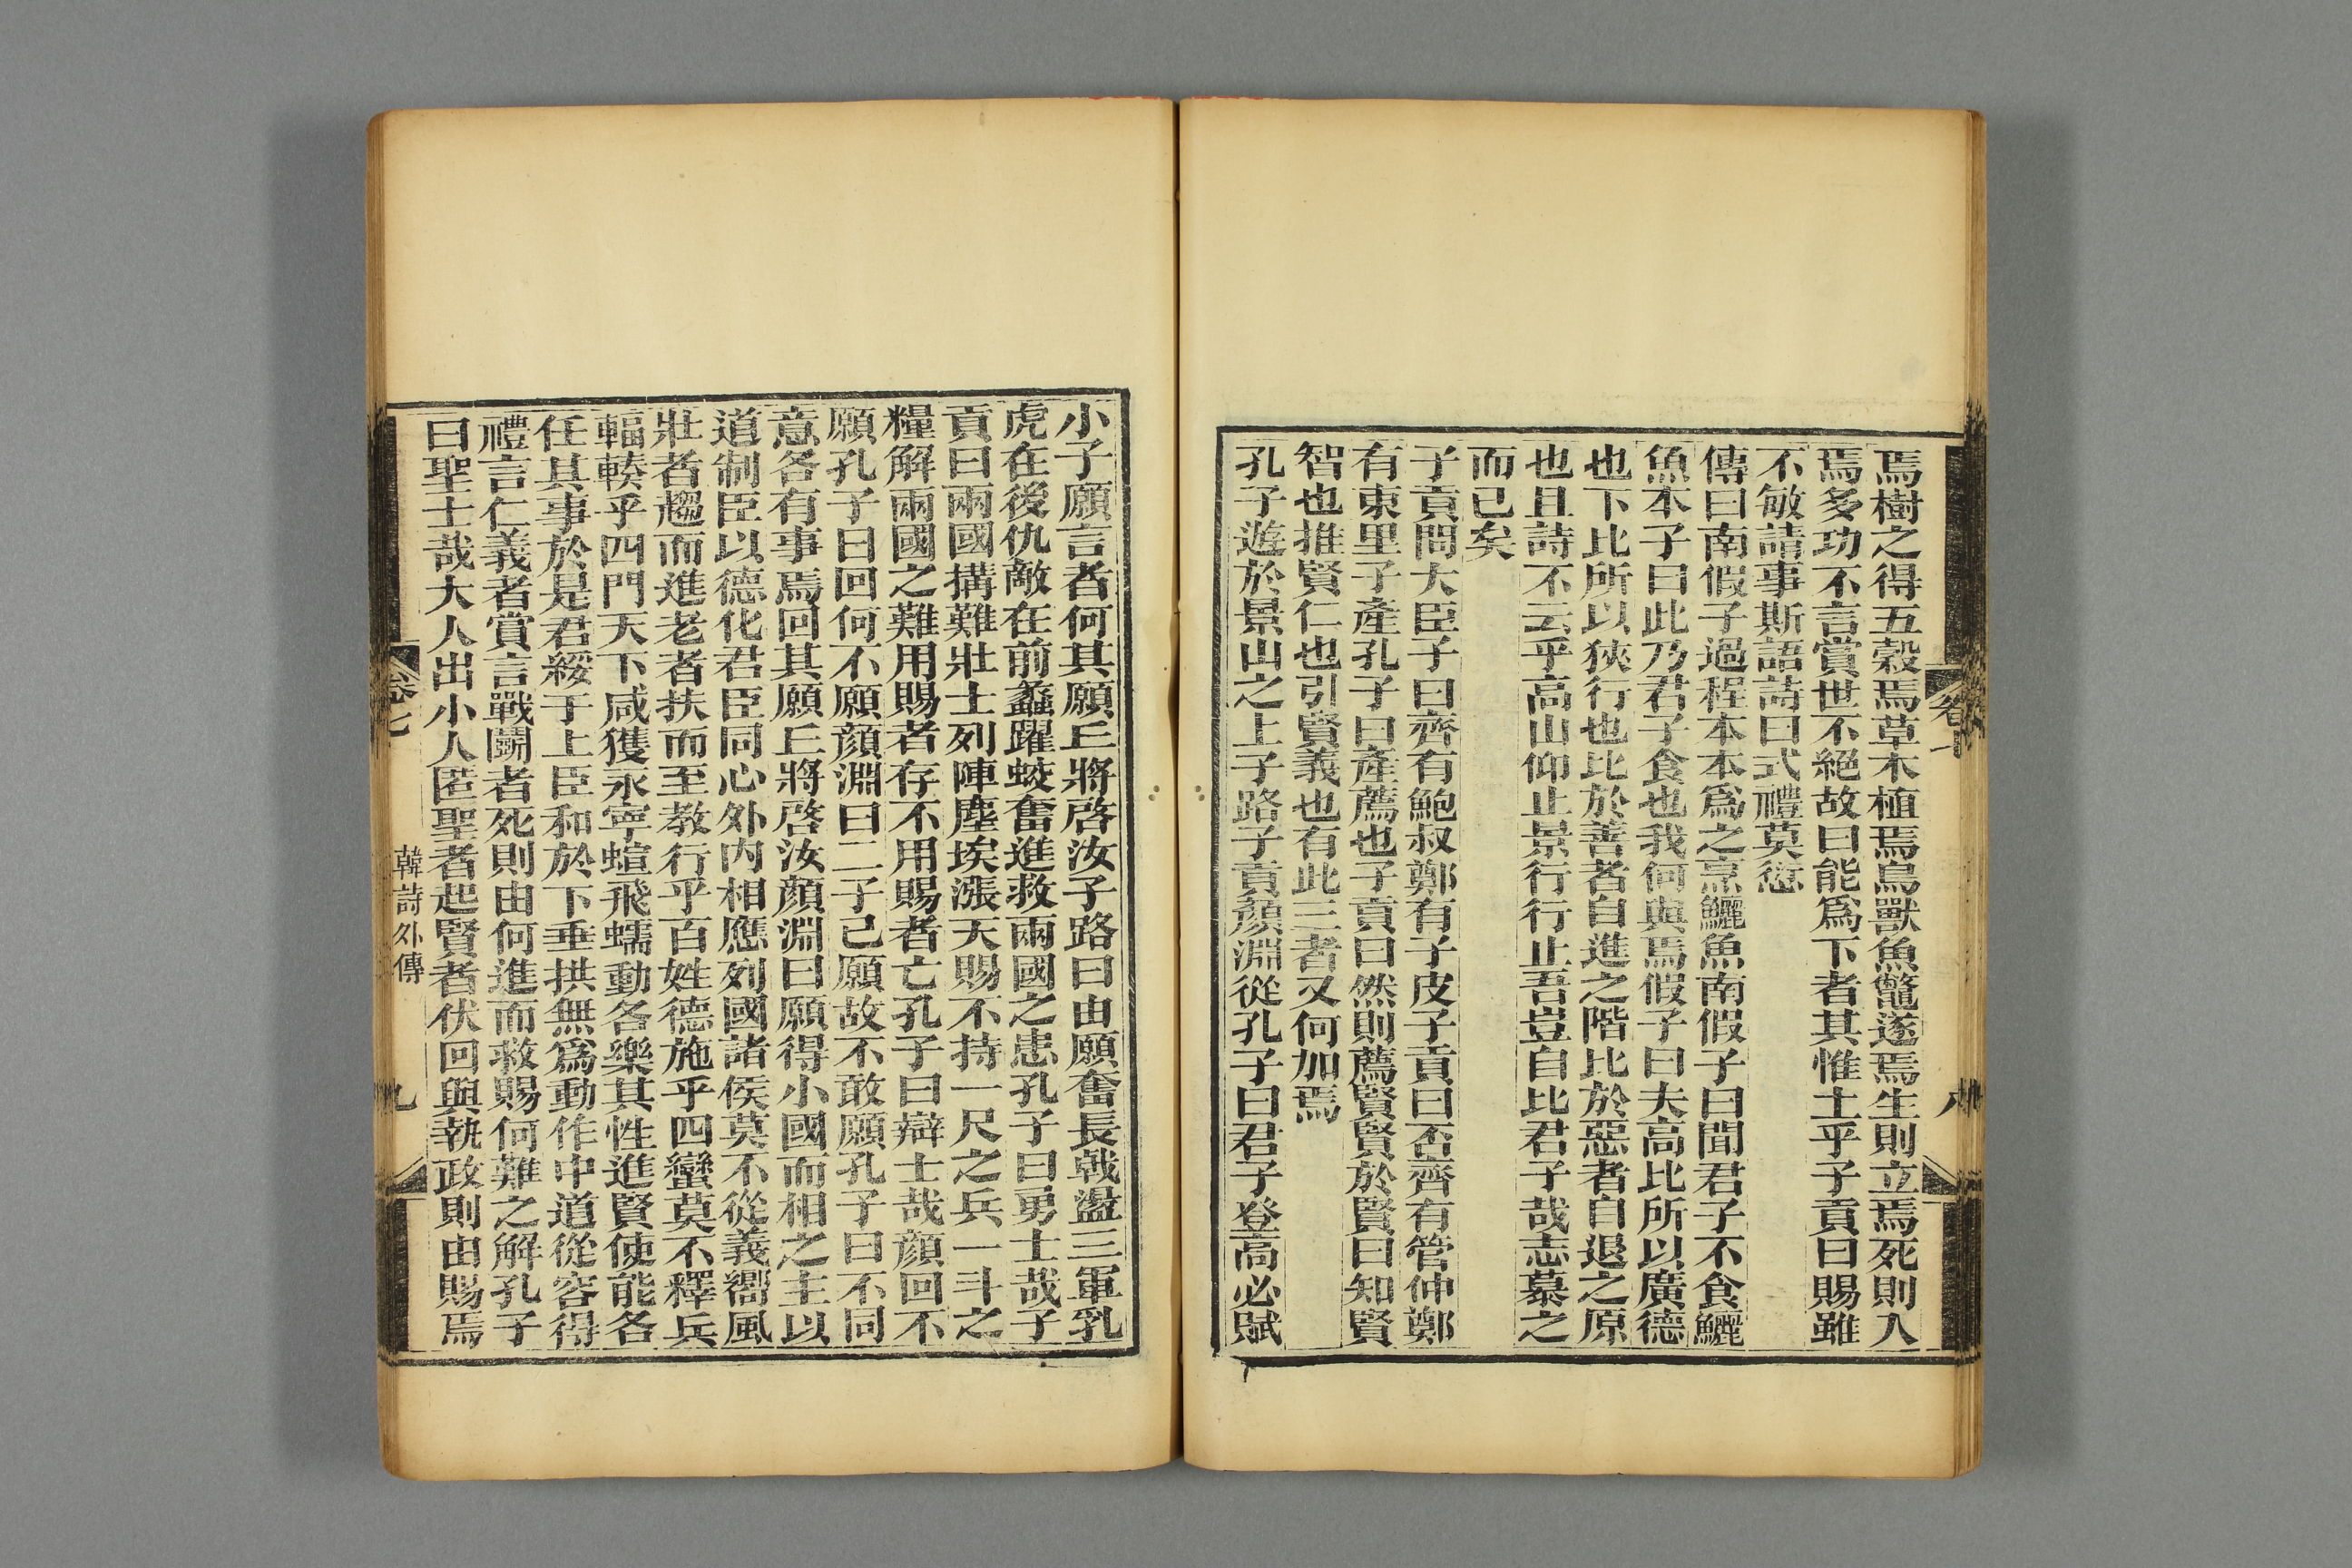 焉樹之得五穀焉草木植焉鳥獸魚鼈遂焉生則立焉死則入
焉多功不言賞世不絕故曰能爲下者其惟土乎子貢曰賜雖
不敏請事斯語詩曰式禮莫愆
傳曰南假子過程本本爲之烹鱺魚南假子曰聞君子不食鱺
魚本子曰此乃君子食也我何與焉假子曰夫高比所以廣德
也下比所以狹行也比於善者自進之階比於惡者自退之原
也且詩不云乎高山仰止景行行止吾豈自比君子哉志慕之
而已矣
子貢問大臣子曰齊有鮑叔鄭有子皮子貢曰否齊有管仲鄭
有東里子產孔子曰產薦也子貢曰然則薦賢賢於賢曰知賢
智也推賢仁也引賢義也有此三者又何加焉
孔子遊於景山之上子路子貢顏淵從孔子曰君子登高必賦
小子願言者何其願丘將啓汝子路曰由願奮長戟盪三軍乳
虎在後仇敵在前蠡躍蛟奮進救兩國之患孔子曰勇士哉子
貢曰兩國搆難壯士列陣塵埃漲天賜不持一尺之兵一斗之
糧解兩國之難用賜者存不用賜者亡孔子曰辯士哉顏回不
願孔子曰回何不願顏淵曰二子已願故不敢願孔子曰不同
意各有事焉回其願丘將啓汝顏淵曰願得小國而相之主以
道制臣以德化君臣同心外内相應列國諸侯莫不從義嚮風
壯者趨而進老者扶而至教行乎百姓德施乎四蠻莫不釋兵
輻輳乎四門天下咸獲永寧蝖飛蠕動各樂其性進賢使能各
任其事於是君綏于上臣和於下垂拱無爲動作中道從容得
禮言仁義者賞言戰鬭者死則由何進而救賜何難之解孔子
曰聖士哉大人出小人匿聖者起賢者伏回與執政則由賜焉
卷七
韓詩外傳
九